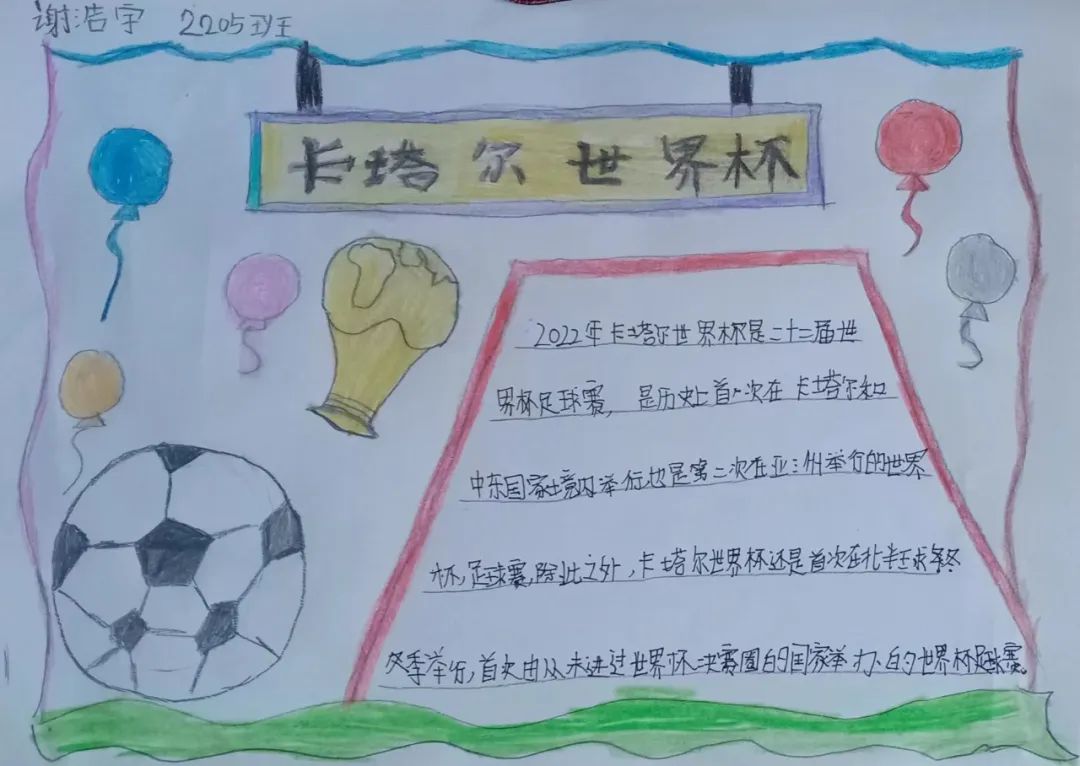 谢浩宇 2205班
卡塔尔世界杯
2022年卡塔尔世界杯是二十二届世
界杯足球赛，是历史上首次在卡塔尔和
中东国家境内举行也是第二次在亚洲举行的世界
杯,足球赛,除此之外,卡塔尔世界杯还是首次在北半球冬
冬季举行,首次由从未进过世界杯决赛圈的国家举办的世界杯足球赛。